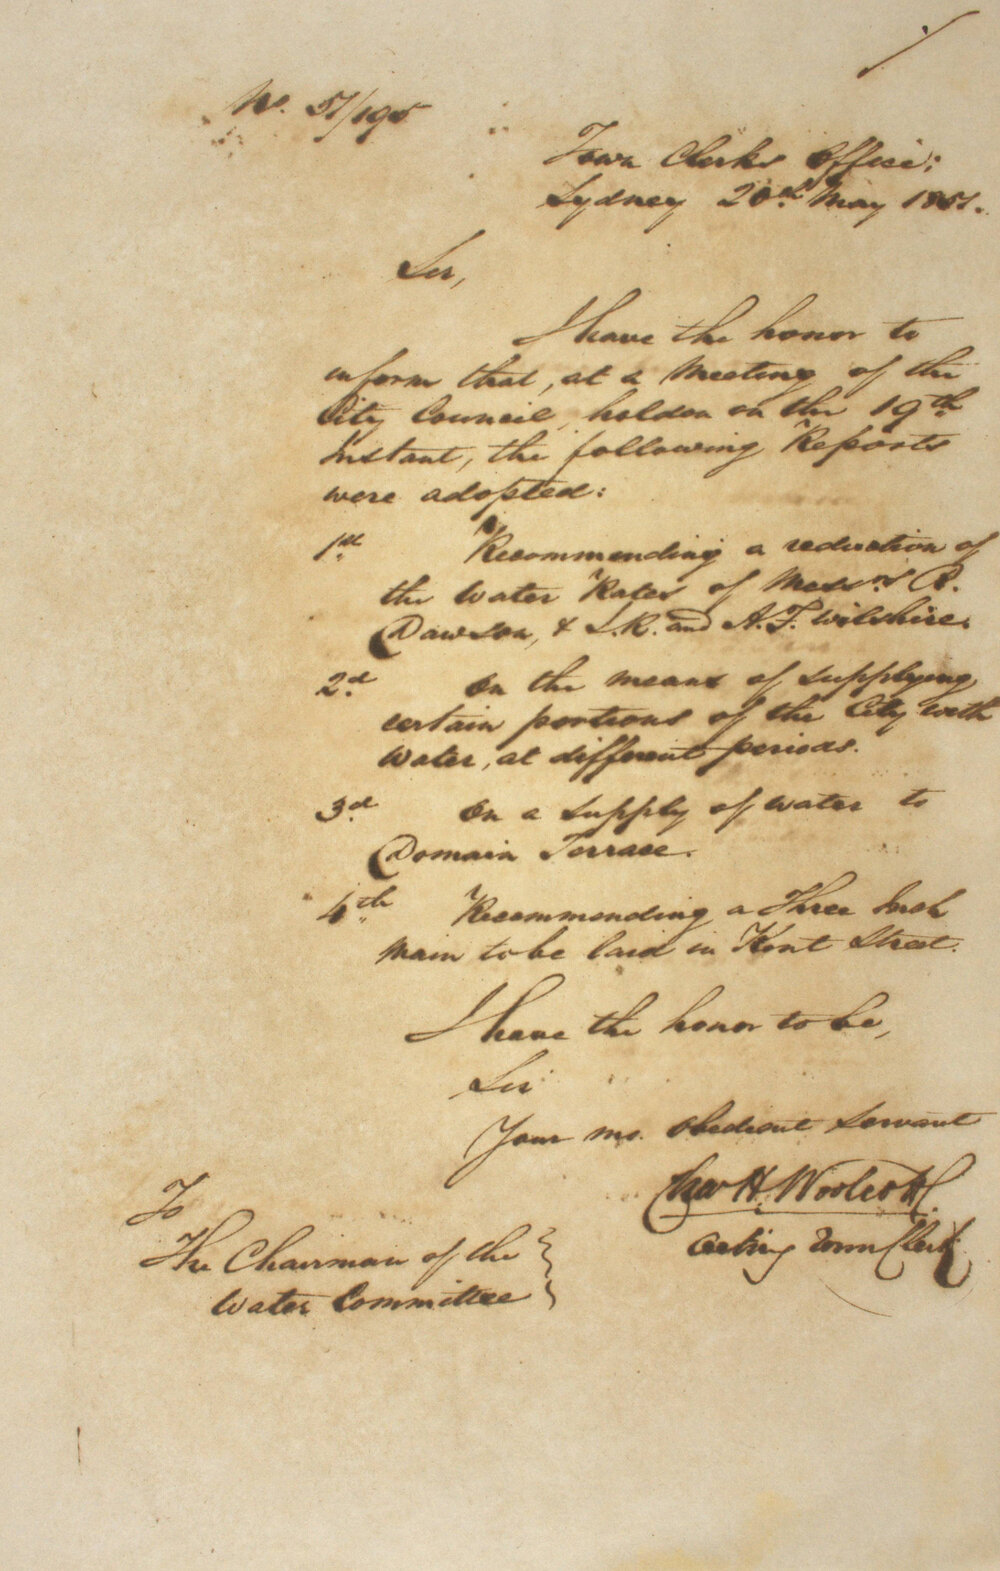 No. 51/195
Town Clerks Office:
Sydney 20th May 1851.
Sir,
I have the honor to
inform that, at a Meeting of the
City Council, holden on the 19th
Instant, the following Reports
were adopted:
1st Recommending a reduction of
the Water Rates of Messrs R.
Dawson, & J.R. and A.F. Wilshire.
2d On the means of supplying
certain portions of the City with
Water, at different periods.
3d On a supply of water to
Domain Terrace.
4th Recommending a Three Inch
Main to be laid in Kent Street.
I have the honor to be,
Sir
Your mo. obedient servant
Chas H. Woolcott
Acting Town Clerk
To
The Chairman of the
Water Committee